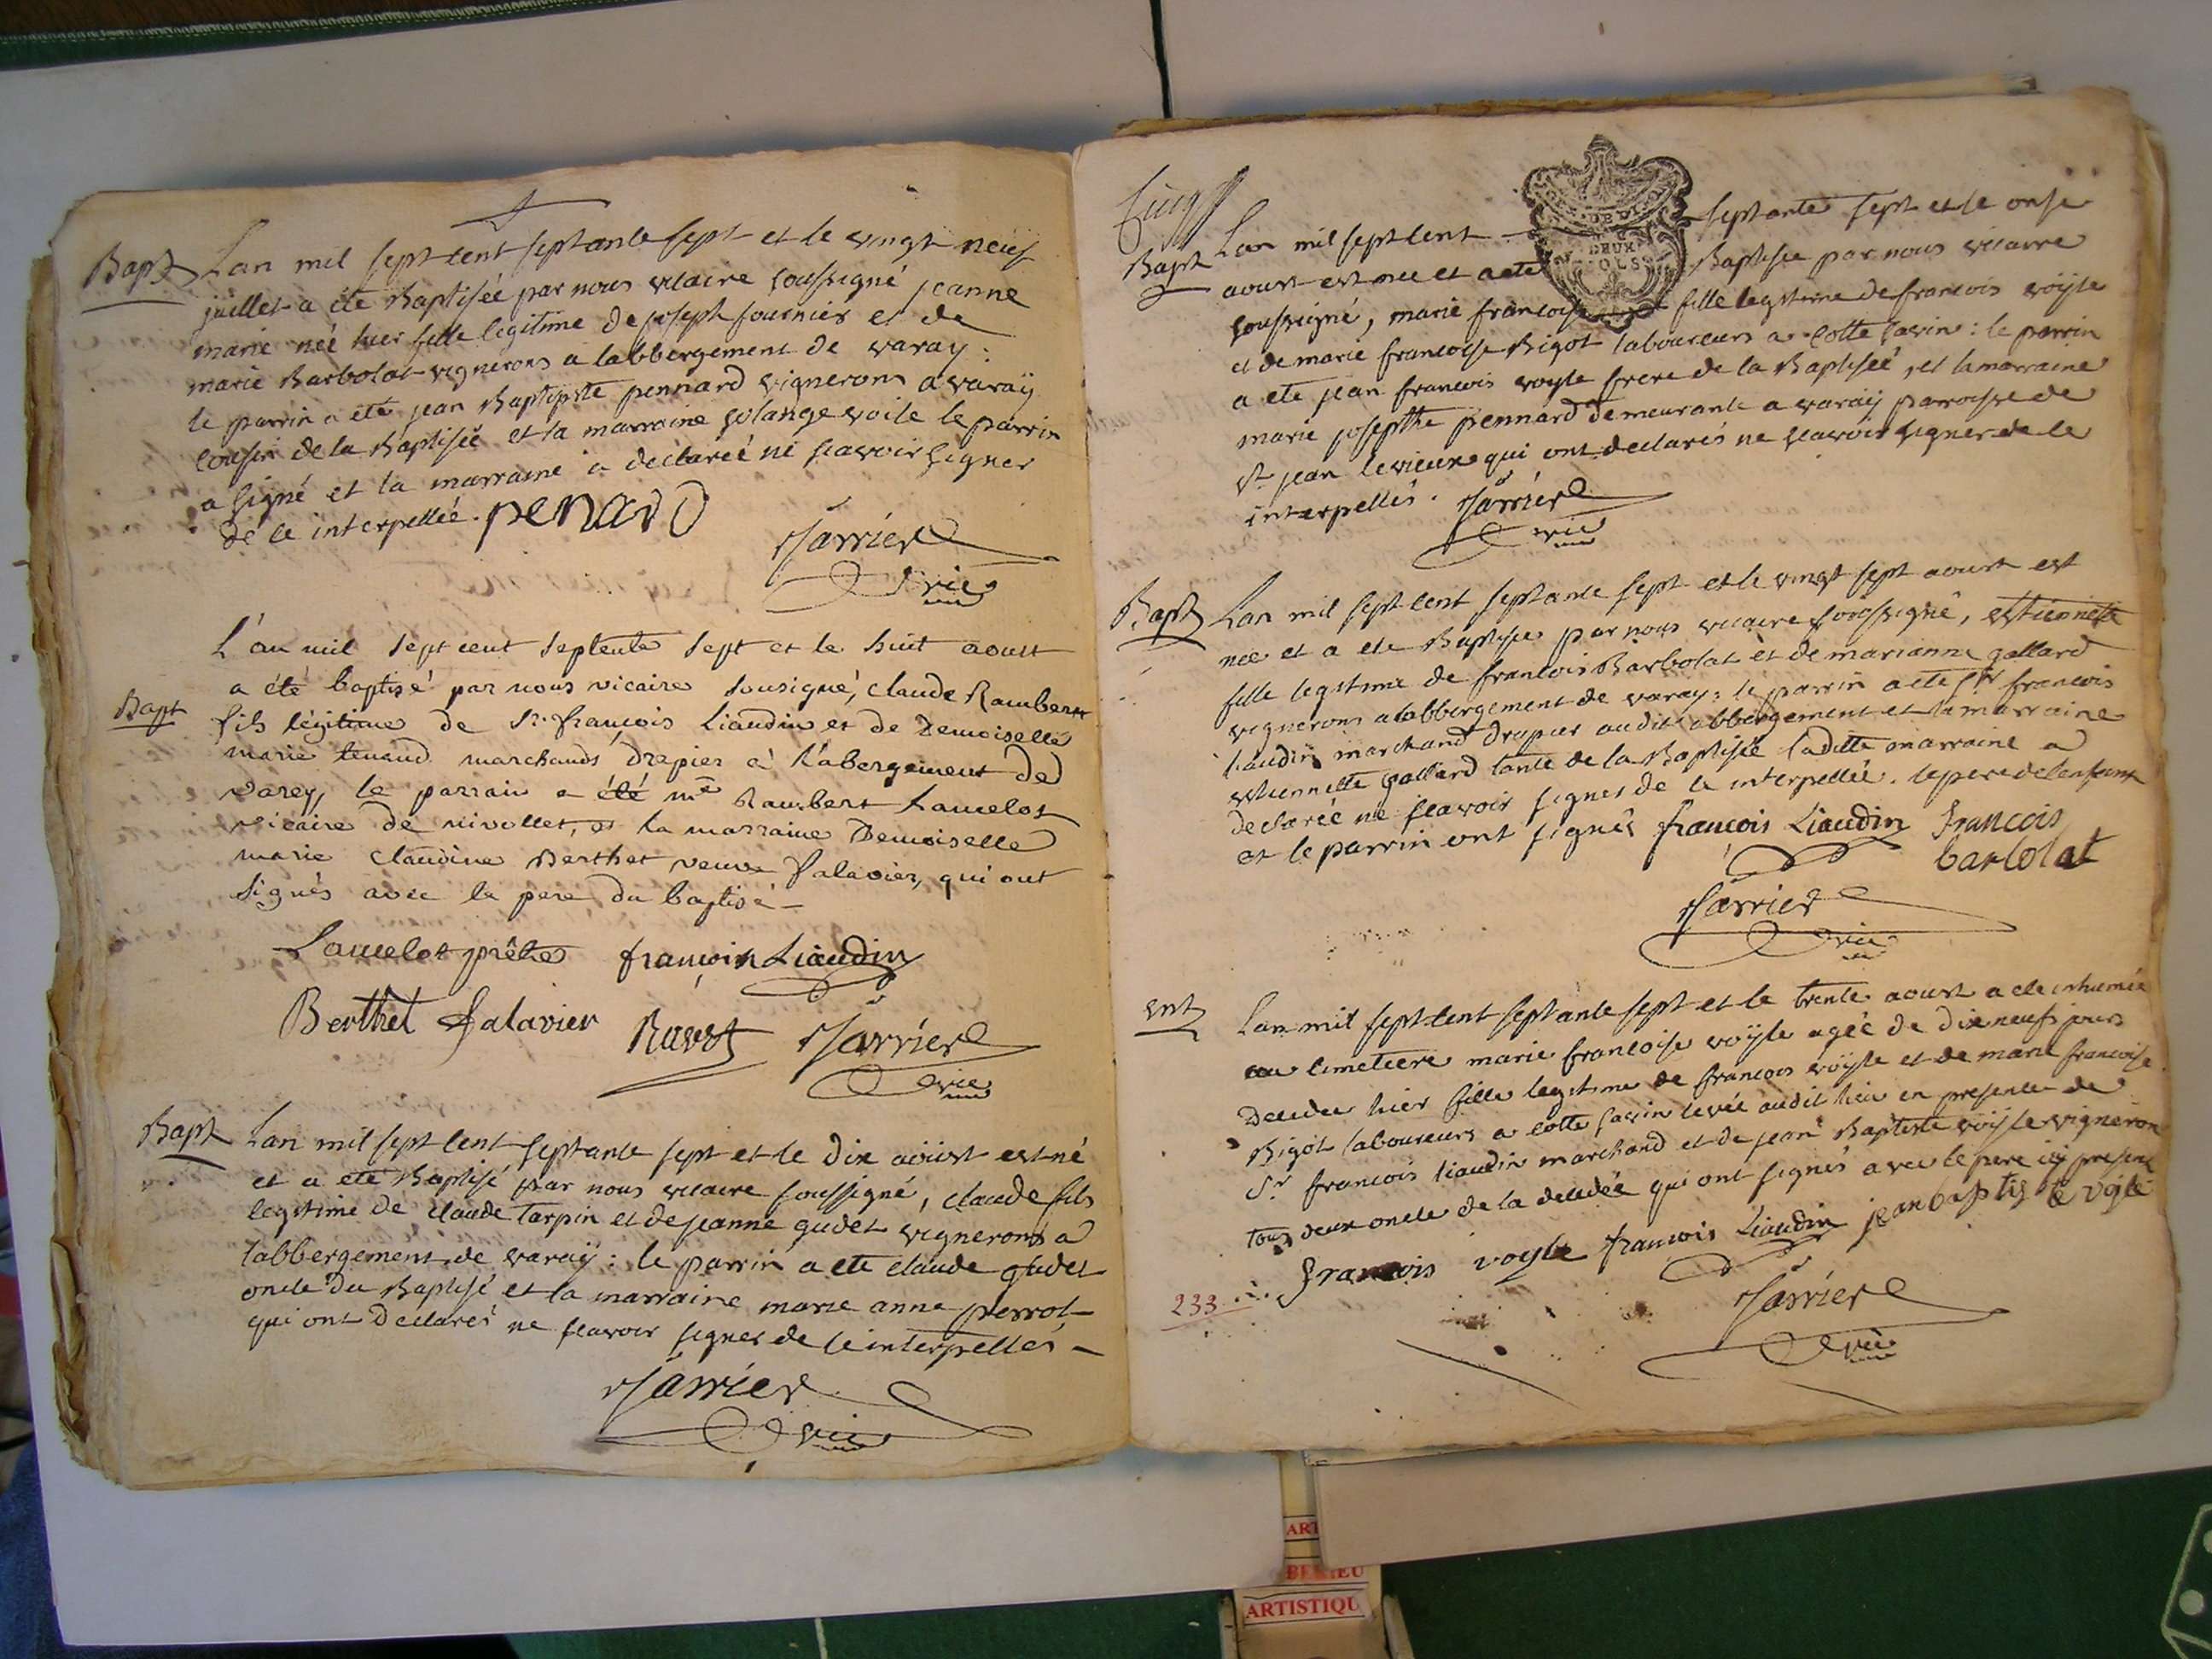 Bapt Lan mil sept cent septante sept et le vingt neuf
juillet a été Baptisée par nous vicaire soussigné jeanne
marie néé hier fille legitime de joseph fournier et de
marie Barbolat vignerons a labbergement de varay :
le parrin a eté jean Baptiste pennard vigneron a varaÿ
cousin de la Baptiséé et la marraine solange voile le parrin
a signé et la marraine a declaréé ne scavoir signer
de ce interpelléé. penard
Jarrier
vic
L'an mil sept cent septente sept et le huit aoust
Bapt
a été baptisé par nous vicaire sousigné, claude Rambert
fils légitime de Sr. françois Liaudin et de Demoiselle
marie tenand marchands drapier à l'abergement de
varey, le parrain a été mre Rambert Lancelot
vicaire de nivollet, et la marraine Demoiselle
marie claudine Berthet veuve Palavier, qui ont
signés avec le pere du baptisé -
Lancelot prêtre françois Liaudin
Berthet Palavier Ravot Jarrier
vic
Bapt Lan mil sept cent septante sept et le dix aoust est né
et a eté Baptisé par nous vicaire soussigné, claude fils
legitime de claude tarpin et de jeanne gudet vignerons a
labbergement de varaÿ : le parrin a eté claude gudet
oncle du Baptisé et la marraine marie anne perrot
qui ont declarés ne scavoir signer de ce interpellés -
Jarrier
vic
Cinq
Bapt Lan mil sept cent septante sept et le onse
DEUX
SOLS
aoust est née et a eté Baptisée par nous vicaire
soussigné, marie francoise fille legitime de francois voÿle
et de marie francoise Bigot laboureurs a Cotte savin : le parrin
a eté jean francois voyle frere de la Baptiséé, et la marraine
marie josepthe pennard demeurante a varaÿ parroisse de
St jean le vieux qui ont declarés ne scavoir signer de ce
interpellés. Jarrier
vic
Bapt Lan mil sept cent septante sept et le vingt sept aoust est
née et a eté Baptisée par nous vicaire soussigné, estiennette
fille legitime de francois Barbolat et de marianne gallard
vignerons a labbergement de varay : le parrin a eté Sr francois
liaudin marchand drapier audit abbergement et la marraine
estiennette gallard tante de la Baptiséé laditte marraine a
declaréé ne scavoir signer de ce interpelléé. le pere de lenfant
et le parrin ont signés françois Liaudin francois
barbolat
Jarrier
vic
ent Lan mil sept cent septante sept et le trente aoust a eté inhumée
au cimetiere marie francoise voÿle agéé de dix neufs jours
decedee hier fille legitime de francois voÿle et de marie francoise
Bigot laboureurs a cotte savin levéé audit lieu en presence de
Sr francois liaudin marchand et de jean Baptiste voÿle vigneron
tous deux oncle de la decedéé qui ont signés avec le pere icy present
francois voyle francois Liaudin jean baptis te voÿle
233
Jarrier
vic
ART
BERIEU
ARTISTIQU